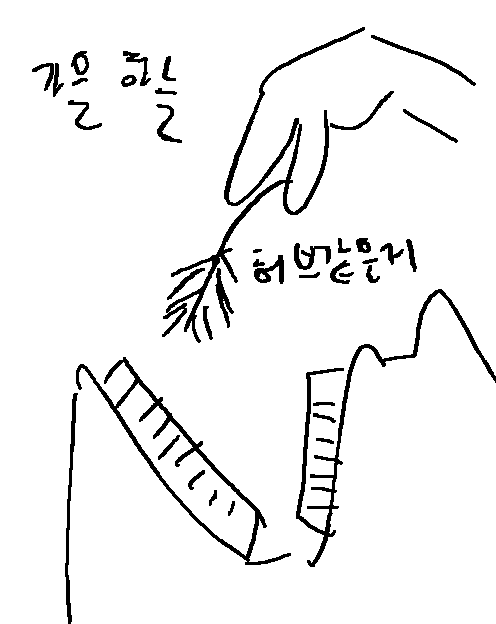 가을 하늘
허브같은거